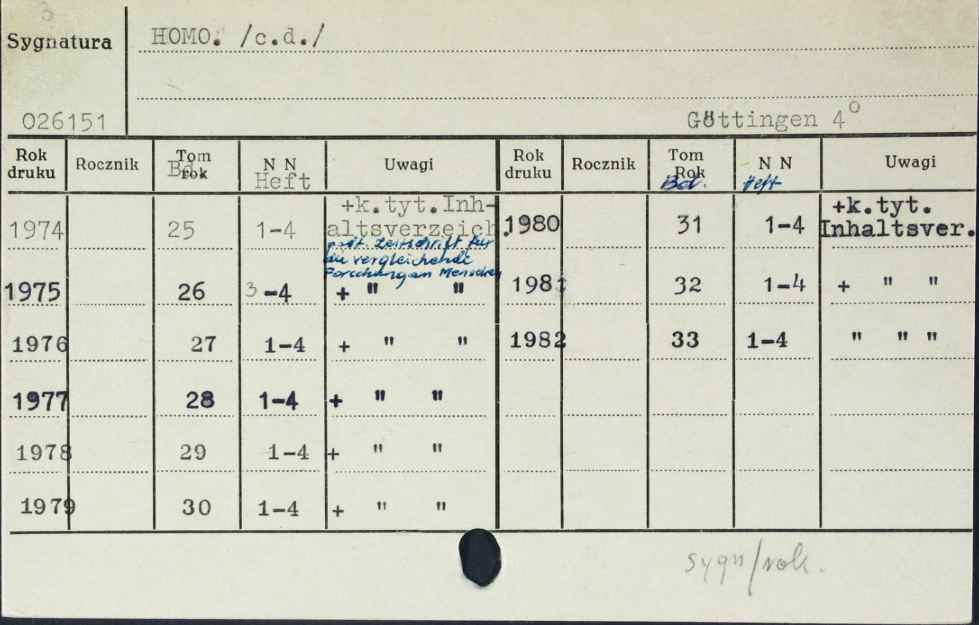 3
Sygnatura HOMO. /c.d./
026151 Göttingen 4°
Rok druku Rocznik Tom Rok Bd. N N Heft Uwagi Rok druku Rocznik Tom Rok Bd. N N Heft Uwagi
1974 25 1-4 +k.tyt.Inh-altsverzeich. 1980 31 1-4 +k.tyt. Inhaltsver.
Zeitschrift für
die vergleichende
Forschung am Menschen
1975 26 3-4 + " " 1981 32 1-4 + " "
1976 27 1-4 + " " 1982 33 1-4 " " "
1977 28 1-4 + " "
1978 29 1-4 + " "
1979 30 1-4 + " "
sygn/rok.